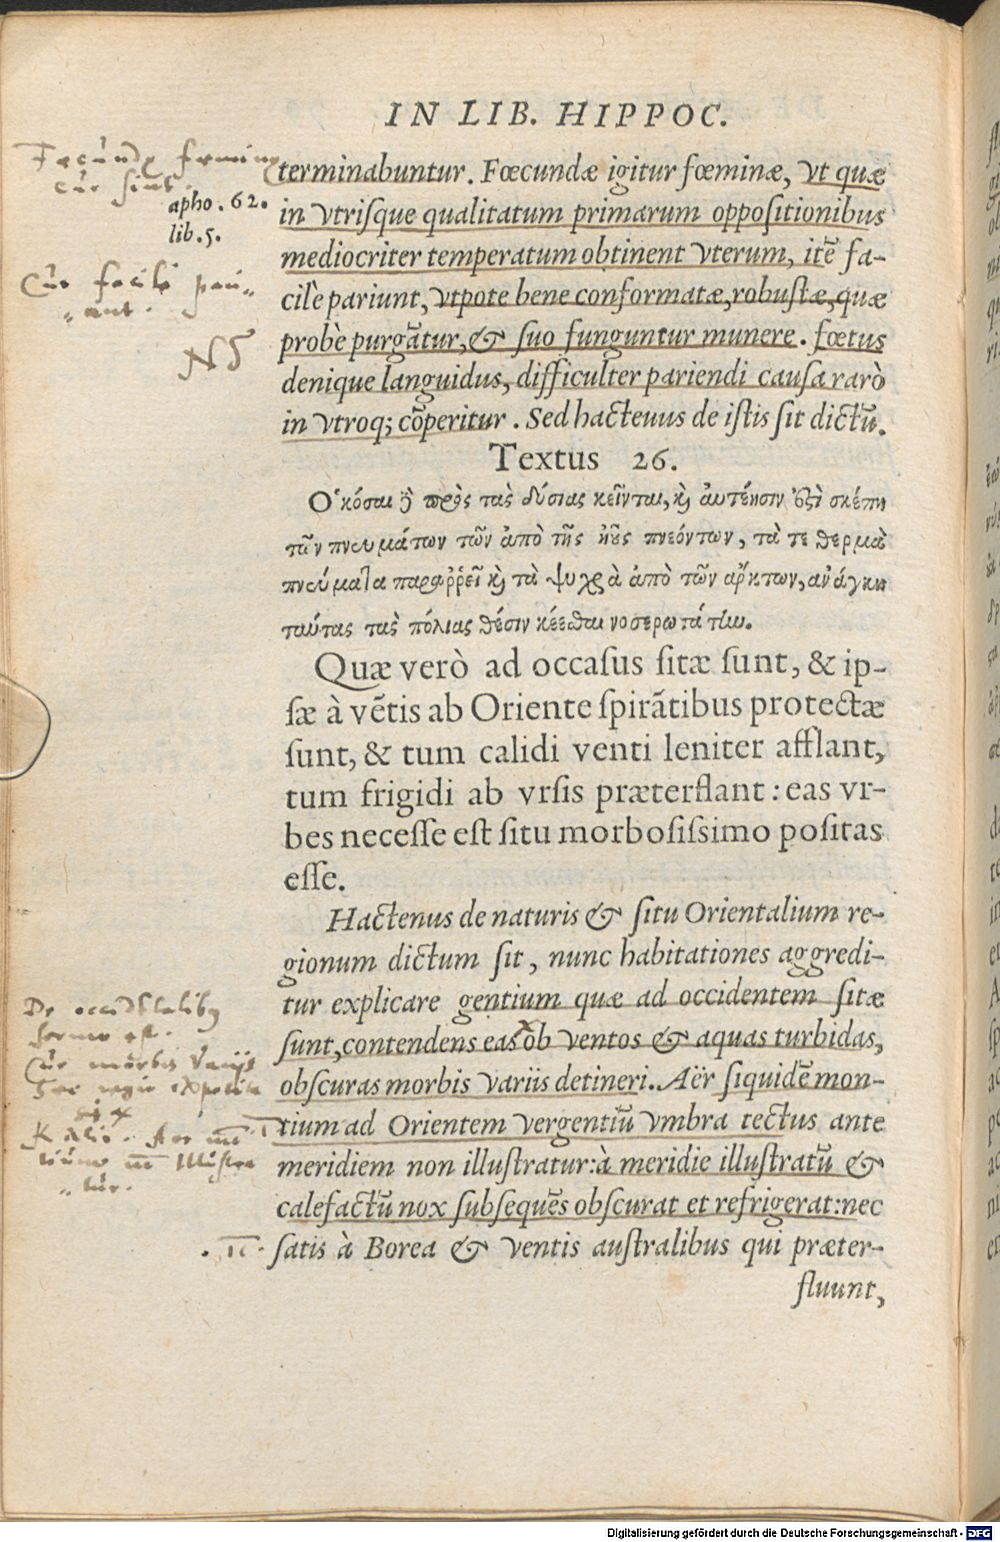 IN LIB. HIPPOC.
Fœcundę fœminę
cur sint.
apho. 62.
lib. 5.
terminabuntur. Fœcundæ igitur fœminæ, vt quæ
in vtriſque qualitatum primarum oppoſitionibus
mediocriter temperatum obtinent vterum, itē fa-
cilè pariunt, vtpote bene conformatæ, robuſtæ, quæ
probè purgātur, & ſuo funguntur munere. fœtus
denique languidus, difficulter pariendi cauſa rarò
in vtroq; cōperitur. Sed hactenus de iſtis ſit dictū.
Cur facile pari-
ant.
Textus 26.
Ὁκόσαι δ̓ πρὸς τὰς δύσιας κεῖνται, καὶ αὐτέησιν ἐστὶ σκέπη
τῶν πνευμάτων τῶν ἀπὸ τῆς ἠοῦς πνεόντων, τὰ τε θερμὰ
πνεύματα παραῤῥεῖ καὶ τὰ ψυχρὰ ἀπὸ τῶν ἄρκτων, ἀνάγκη
ταύτας τὰς πόλιας θέσιν κέεσθαι νοσερωτάτην.
Quæ verò ad occaſus ſitæ ſunt, & ip-
ſæ à vētis ab Oriente ſpirātibus protectæ
ſunt, & tum calidi venti leniter afflant,
tum frigidi ab vrſis præterflant: eas vr-
bes neceſſe eſt ſitu morboſiſsimo poſitas
eſſe.
Hactenus de naturis & ſitu Orientalium re-
gionum dictum ſit, nunc habitationes aggredi-
tur explicare gentium quæ ad occidentem ſitæ
ſunt, contendens eas ob ventos & aquas turbidas,
obſcuras morbis variis detineri. Aër ſiquidē mon-
tium ad Orientem vergentiū vmbra tectus ante
meridiem non illuſtratur: à meridie illuſtratū &
calefactū nox ſubſequēs obſcurat et refrigerat: nec
ſatis à Borea & ventis auſtralibus qui præter-
fluunt,
De occidētalibꝰ
sermo est.
Cur morbis variis
Digitalisierung gefördert durch die Deutsche Forschungsgemeinschaft - DFG